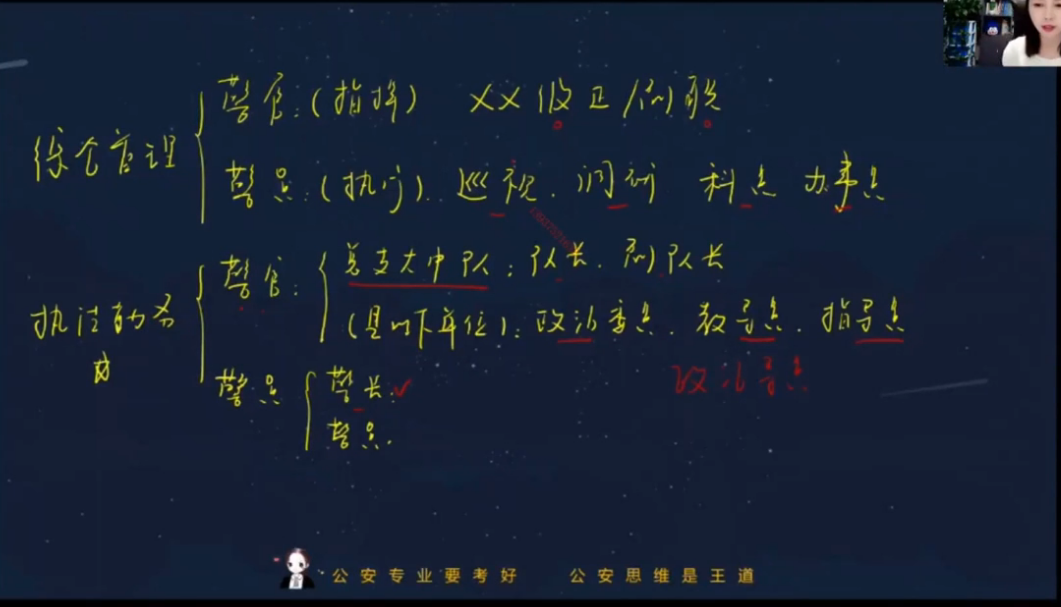 综合管理
警官：（指挥） XX级正/副职
警员：（执行）．巡视．调研 科员 办事员
执法勤务
警官：
总支大中队：队长．副队长
（县以下单位）：政治委员．教导员．指导员
政治导员
警员
警长：✓
警员．
公安专业要考好 公安思维是王道